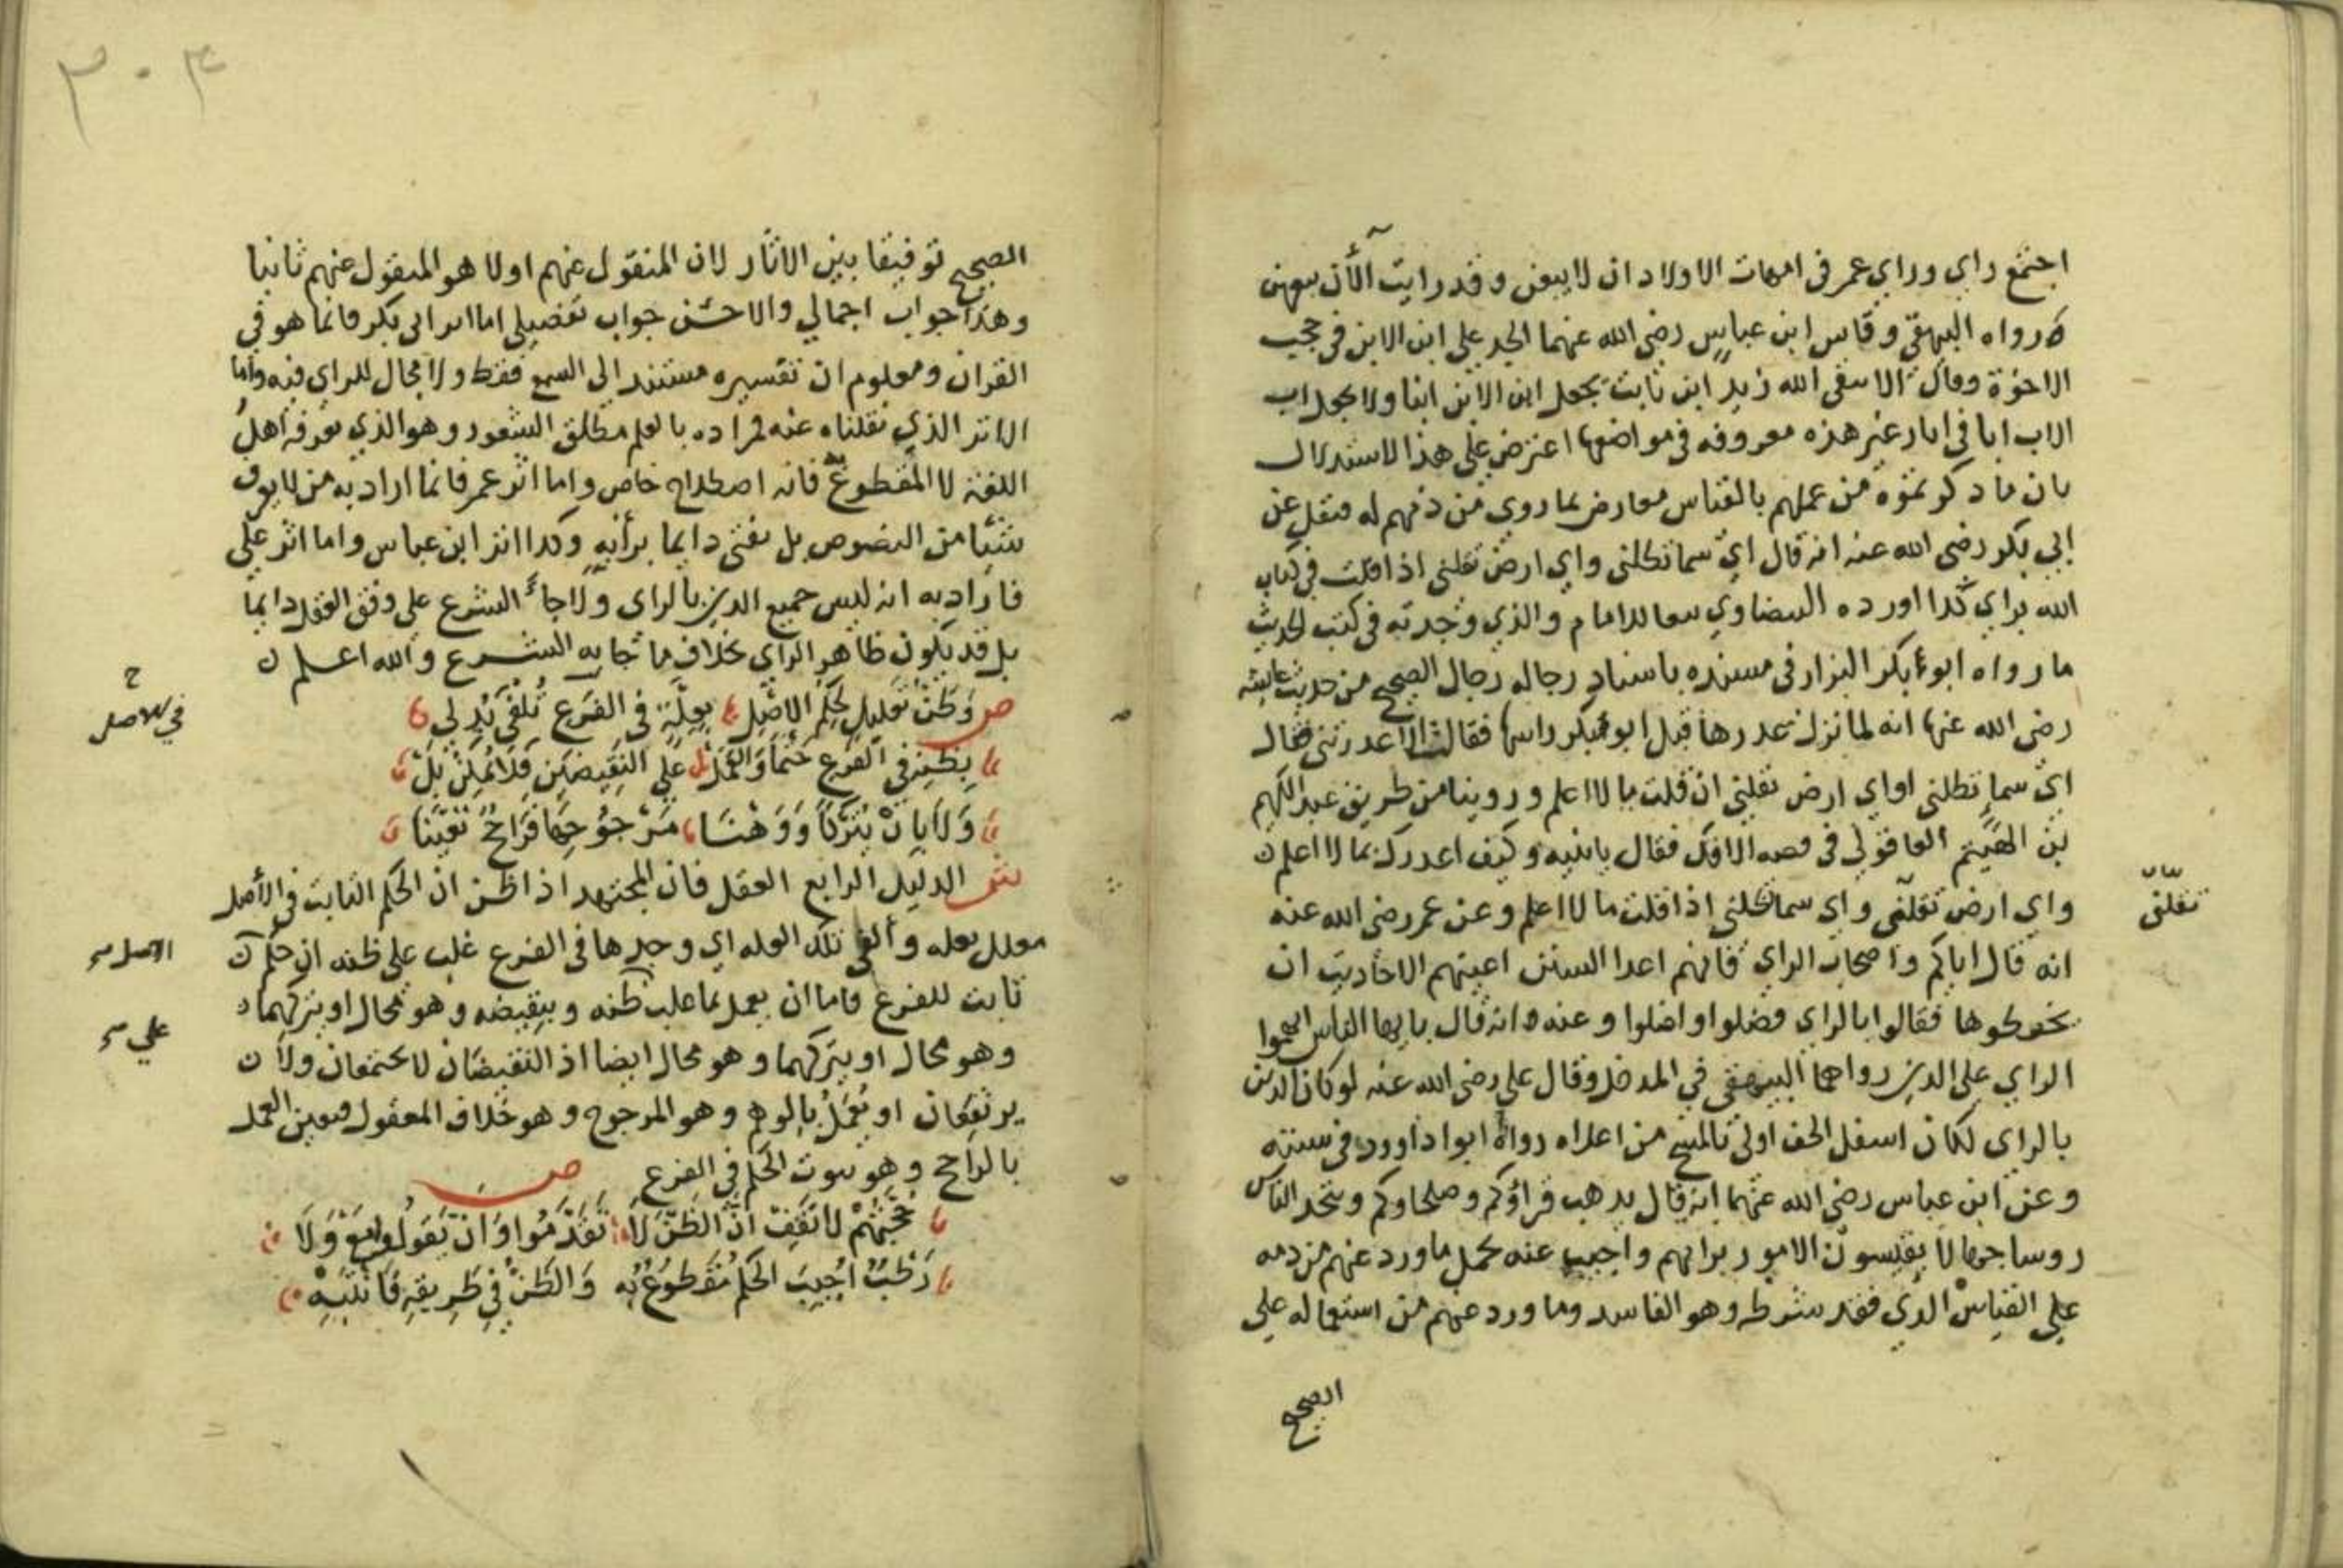 اجتمع راي وراي عمر في امهات الاولاد ان لا يبعن وقد رايت الآن بيعهن
رواه البيهقي وقاس ابن عباس رضي الله عنهما الجد علي ابن الابن في حجب
الاخوة وقال الا يتقي الله زيد ابن ثابت يجعل ابن الابن ابنا ولا يجعل اب
الاب ابا في اثار غير هذه معروفه في مواضعها اعترض علي هذا الاستدلال
بان ما ذكرتموه من عملهم بالقياس معارض بما روي من ذمهم له فنقل عن
ابي بكر رضي الله عنه انه قال اي سما تظلني واي ارض تقلني اذا قلت في كتاب
الله براي كذا اورده البيضاوي تبعا للامام والذي وجدته في كتب الحديث
ما رواه ابو بكر البزار في مسنده باسناد رجاله رجال الصحيح من حديث عايشه
رضي الله عنها انه لما نزل عذرها قبل ابو بكر راسها فقالت الا عذرتني فقال
اي سما تظلني او اي ارض تقلني ان قلت ما لا اعلم وروينا من طريق عبد الكريم
بن الهيثم العاقولي في قصه الافك فقال يا بنيه وكيف اعذرك بما لا اعلم
واي ارض تقلني واي سما تظلني اذا قلت ما لا اعلم وعن عمر رضي الله عنه
تقلني
انه قال اياكم واصحاب الراي فانهم اعدا السنن اعيتهم الاحاديث ان
يحفظوها فقالوا بالراي فضلوا واضلوا وعنه انه قال يا ايها الناس اتهموا
الراي علي الدين رواهما البيهقي في المدخل وقال علي رضي الله عنه لو كان الدين
بالراي لكان اسفل الخف اولي بالمسح من اعلاه رواه ابوا داوود في سننه
وعن ابن عباس رضي الله عنهما انه قال يذهب قراؤكم وصلحاوكم ويتخذ الناس
روسا جهالا يقيسون الامور برايهم واجيب عنه بحمل ما ورد عنهم من ذمه
علي القياس الذي فقد شرطه وهو الفاسد وما ورد عنهم من استعماله علي
الصحيح
٣٠٤
الصحيح توفيقا بين الاثار لان المنقول عنهم اولا هو المنقول عنهم ثانيا
وهذا جواب اجمالي والاحسن جواب تفصيلي اما اثر ابي بكر فانما هو في
القران ومعلوم ان تفسيره مستند الي السمع فقط ولا مجال للراي فيه واما
الاثر الذي نقلناه عنه فمراده بالعلم مطلق الشعور وهو الذي يعرفه اهل
اللغة لا المقطوع فانه اصطلاح خاص واما اثر عمر فانما اراد به من لا يعرف
شيئا من النصوص بل يفتي دايما برأيه وكذا اثر ابن عباس واما اثر علي
فاراد به انه ليس جميع الدين بالراي ولا جاء الشرع علي وفق العقل دايما
بل قد يكون ظاهر الراي بخلاف ما جا به الشرع والله اعلم
ص وَظَنّ تَعْلِيلٍ لِحُكْمِ الاَصْلِ بِعِلَّةٍ في الفَرْعِ تُلْفَي يُدْلي
في الاصل
يظنه في الفرع حتما والعمل علي النقيضين فلا يمكن بل
ولا بان يتركا ووهنا مرجوحها فراجح تعينا
ش الدليل الرابع العقل فان المجتهد اذا ظن ان الحكم الثابت في الأصل
معلل بعله وألفي تلك العله اي وجدها في الفرع غلب علي ظنه ان حكم
الاصل
ثابت للفرع فاما ان يعمل بما غلب ظنه وبنقيضه وهو محال او يتركهما
علي
وهو محال او يتركهما وهو محال ايضا اذ النقيضان لا يجتمعان ولا
يرتفعان او يعمل بالوهم وهو المرجوح وهو خلاف المعقول فتعين العمل
بالراجح وهو ثبوت الحكم في الفرع ص
حُجَّتُهُمْ لا تَقفُ انَّ الظَّنَّ لَا تَقَدَّمُوا وَانْ تَقُولُوا مَعَ وَلَا
رَطْبٍ اُجِيبَ الحُكْمُ مَقْطُوعٌ بِه وَالظَّنُّ فِي طَرِيقِهِ فَانْتَبِهِ